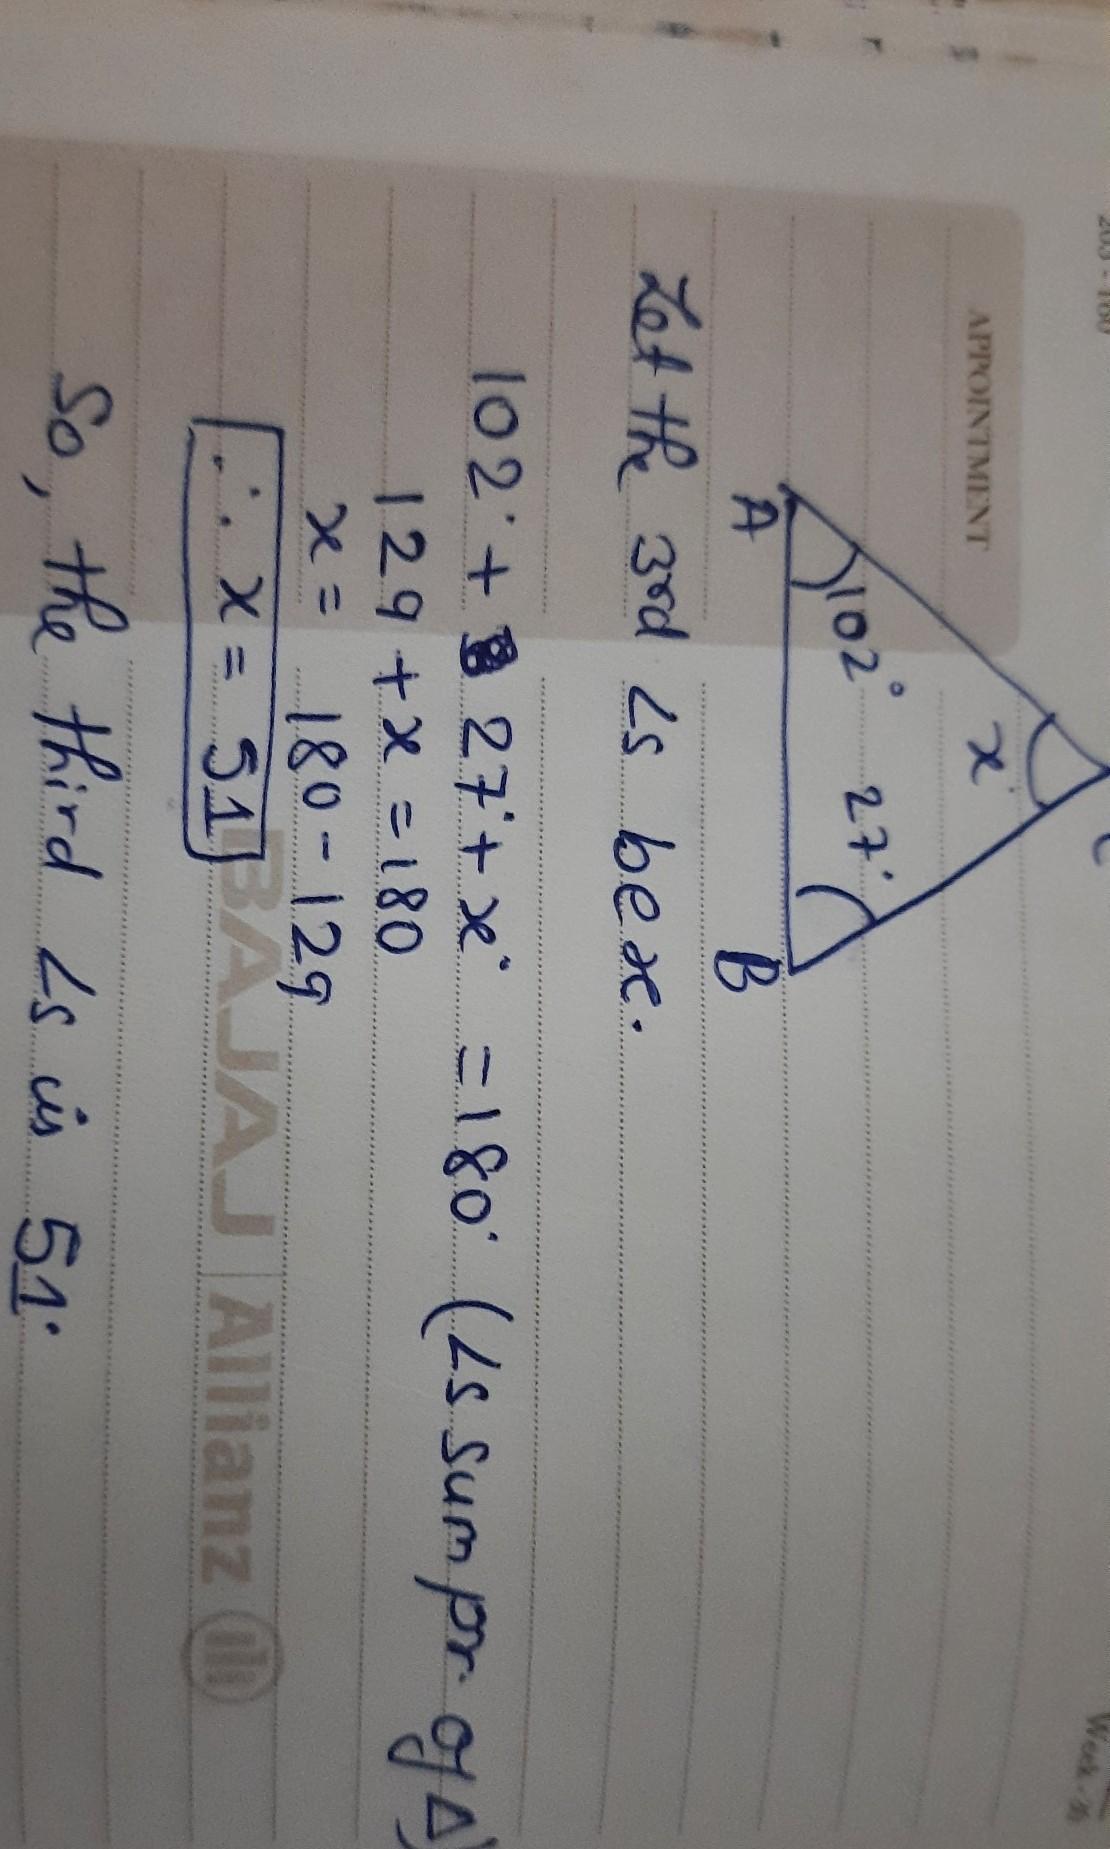 203-160
Week-30
APPOINTMENT
x
102° 27°
A B
Let the 3rd ∠s be x.
102° + 27° + x° = 180° (∠s sum pr. of Δ)
129 + x = 180
x = 180 - 129
∴ x = 51
BAJAJ | Allianz
So, the third ∠s is 51°